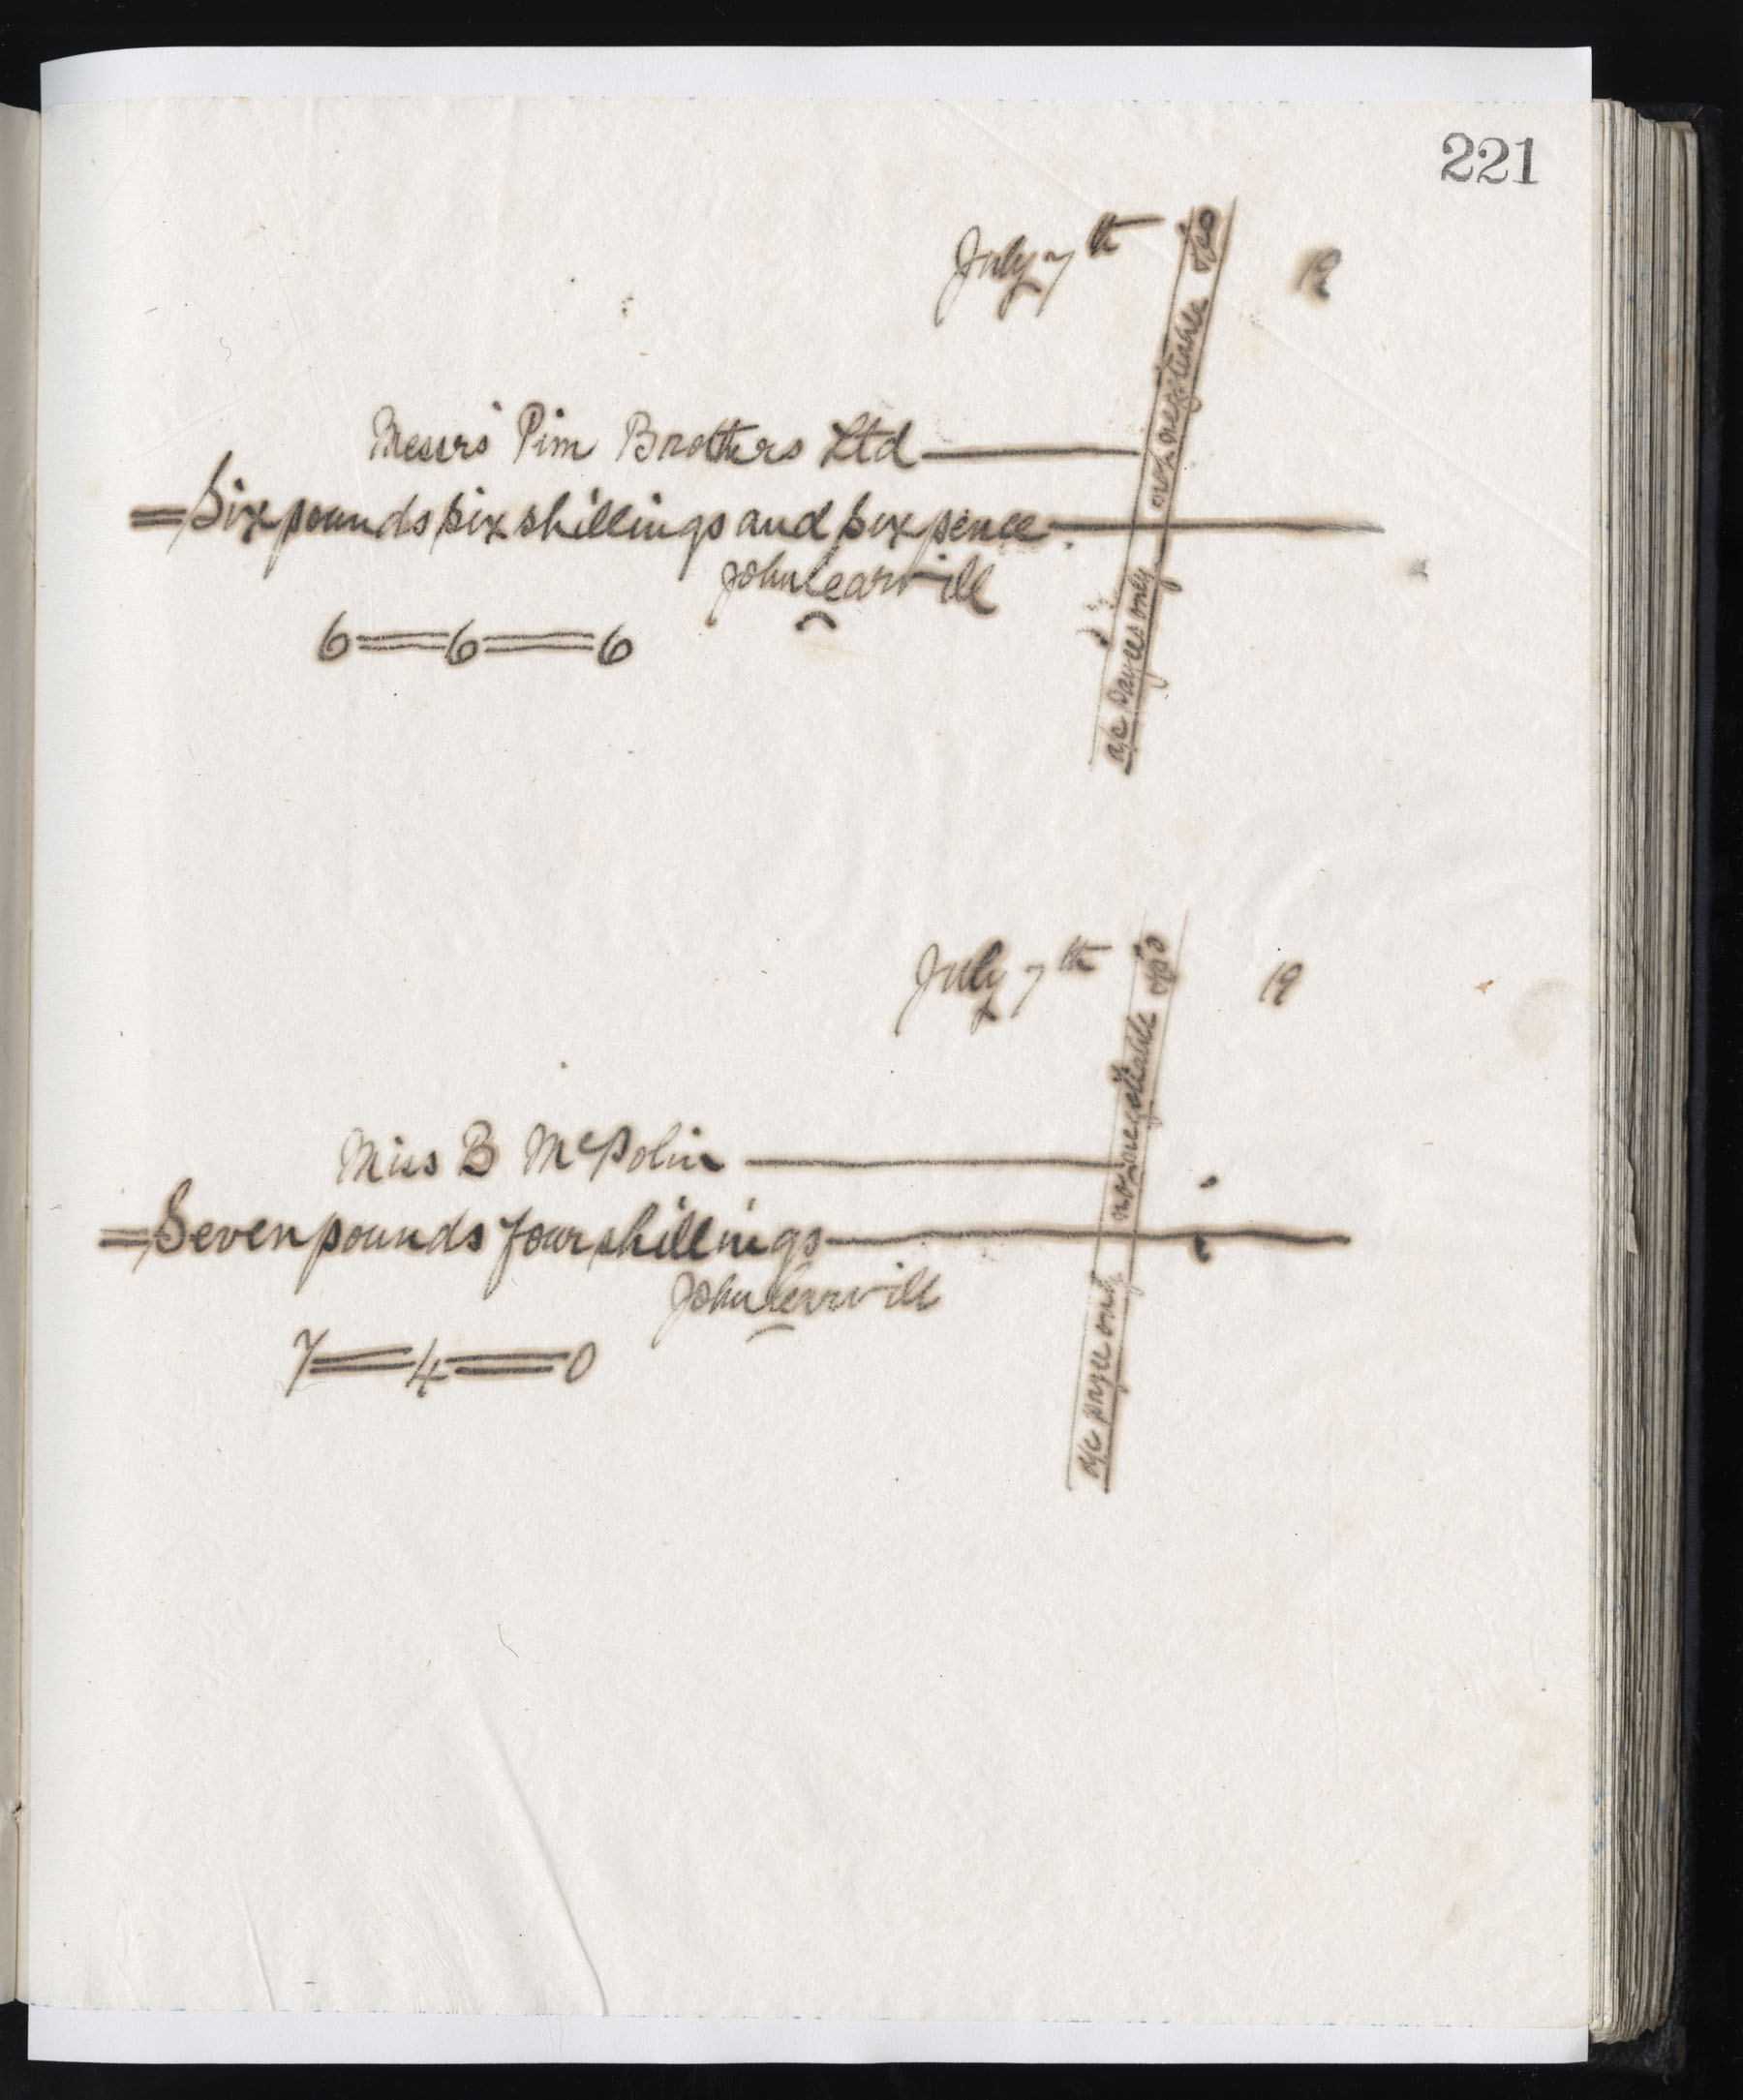 221
July 7th 19
Messrs Pim Brothers Ltd
Six pounds six shillings and six pence
John
6 = 6 = 6
a/c payees only not negotiable & Co
July 7th 19
Miss B McPolin
Seven pounds four shillings
John
7 = 4 = 0
a/c payee only not negotiable & Co